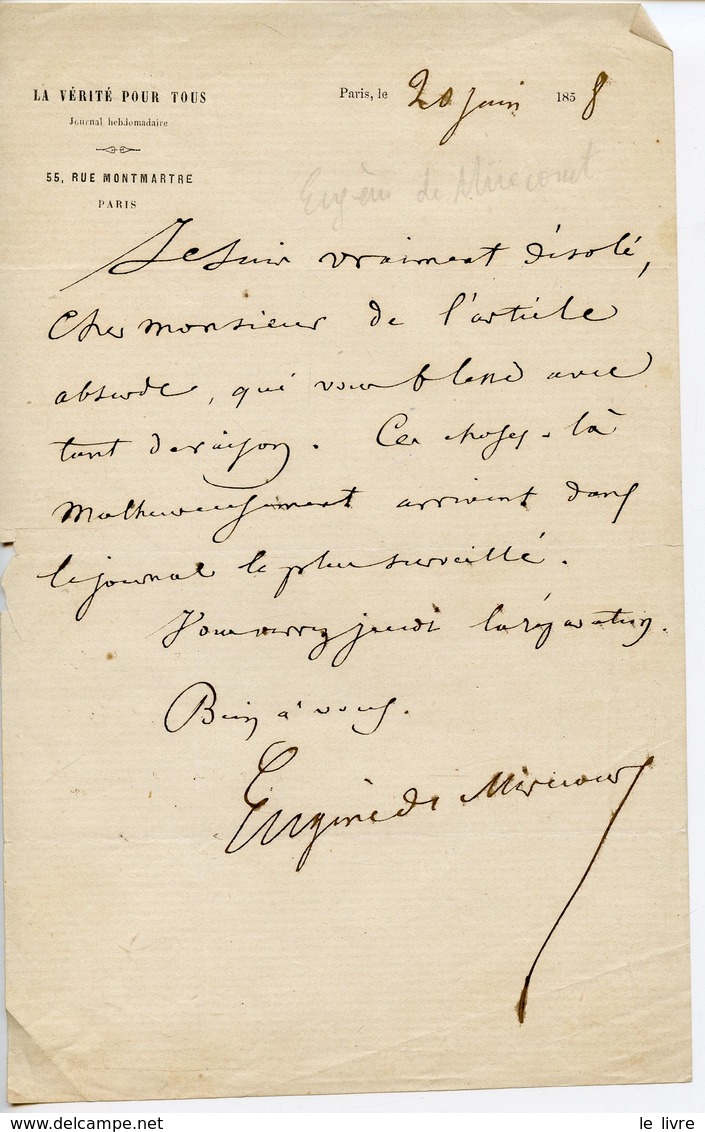 LA VÉRITÉ POUR TOUS
Journal hebdomadaire
55, RUE MONTMARTRE
PARIS
Paris, le 20 juin 1858
Eugène de Mirecourt
Je suis vraiment désolé,
Cher monsieur de l'article
absurde, qui vous blesse avec
tant de raison. Ces choses-là
Malheureusement arrivent dans
le journal le plus surveillé.
Vous verrez jeudi la réparation.
Bien à vous.
Eugène de Mirecourt
le livre